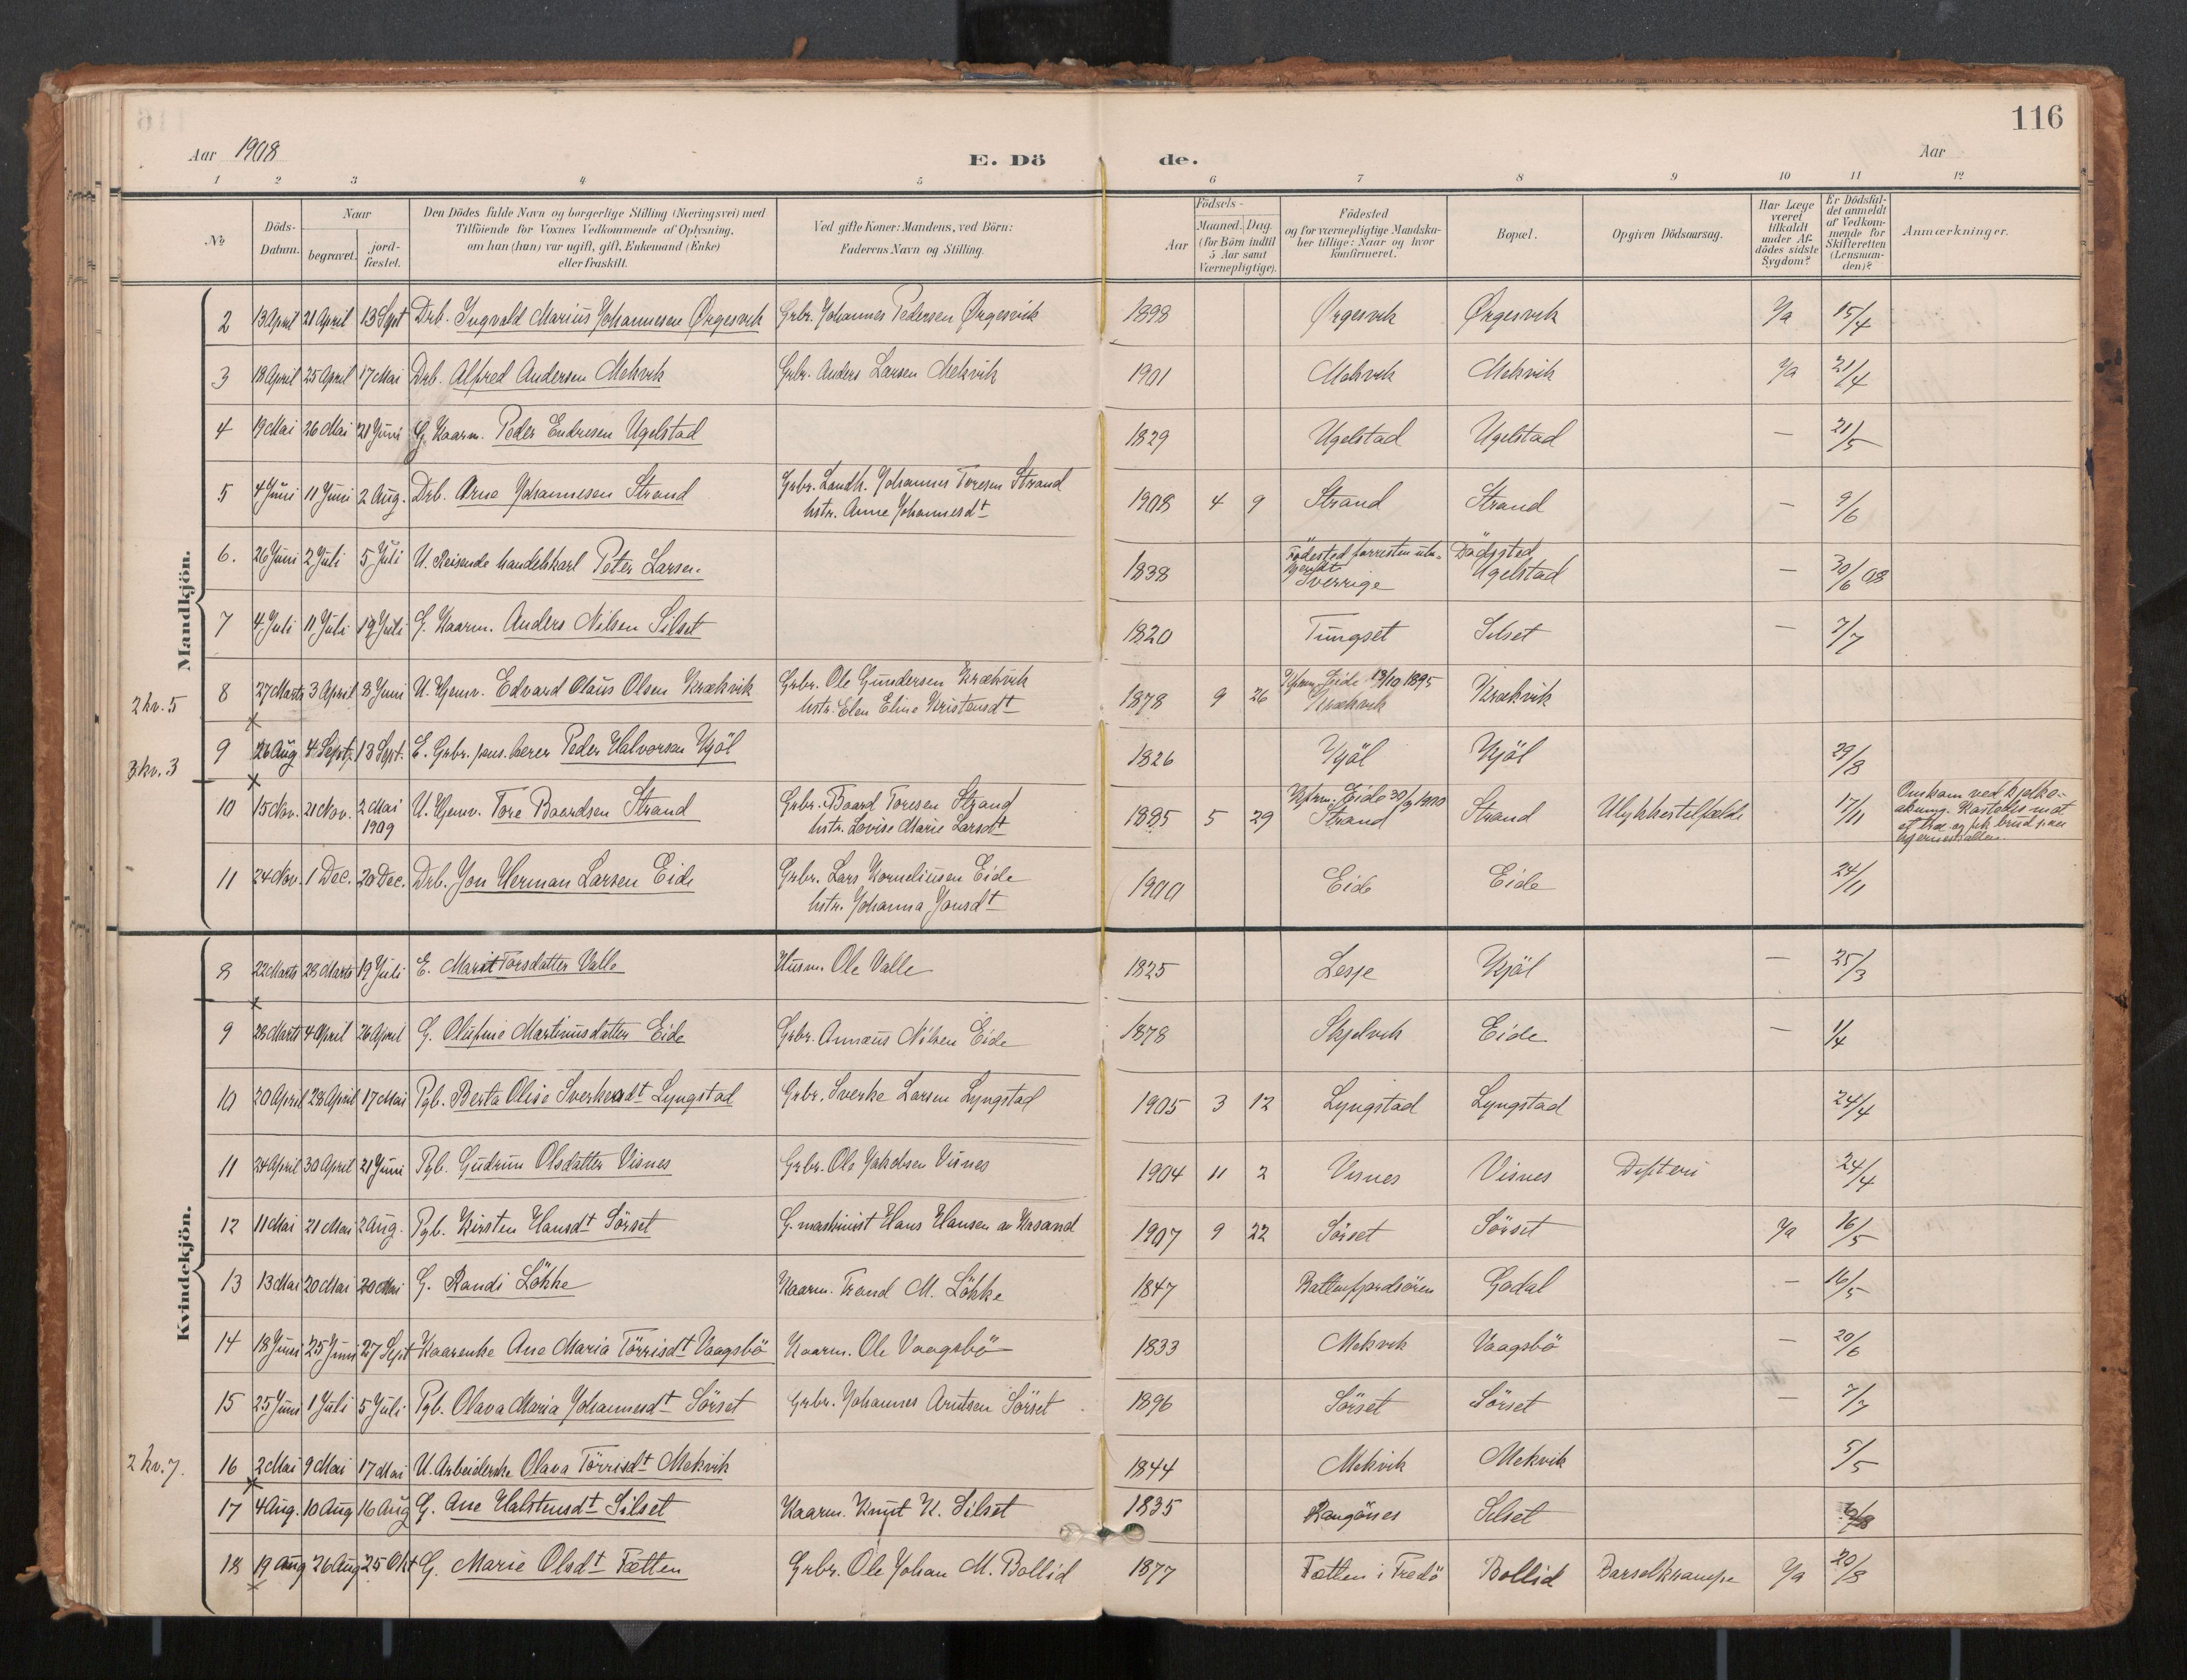 116
Aar 1908
E. Dö de.
Aar
1 2 3 4 5 6 7 8 9 10 11 12
№
Döds-Datum.
Naar
begravet.
jord-fæstet.
Den Dödes fulde Navn og borgerlige Stilling (Næringsvei) med
Tilföiende for Voxnes Vedkommende af Oplysning,
om han (hun) var ugift, gift, Enkemand (Enke)
eller fraskilt.
Ved gifte Koner: Mandens, ved Börn:
Faderens Navn og Stilling.
Födsels-
Aar
Maaned. Dag.
(for Börn indtil
5 Aar samt
Værnepligtige).
Födested
og for værnepligtige Mandska-
ber tillige: Naar og hvor
konfirmeret.
Bopæl.
Opgiven Dödsaarsag.
Har Læge
været
tilkaldt
under Af-
dödes sidste
Sygdom?
Er Dödsfal-
det anmeldt
af Vedkom-
mende for
Skifteretten
(Lensman-
den)?
Anmærkninger.
Mandkjön.
2 13 April 21 April 13 Sept Drb. Ingvald Marius Johannesen Ørgesvik Grbr. Johannes Pedersen Ørgesvik 1898 Ørgesvik Ørgesvik Ja 15/4
3 18 April 25 April 17 Mai Drb. Alfred Andersen Mekvik Grbr. Anders Larsen Mekvik 1901 Mekvik Mekvik Ja 21/4
4 19 Mai 26 Mai 21 Juni G. Kaarm. Peder Endresen Ugelstad 1829 Ugelstad Ugelstad — 21/5
5 4 Juni 11 Juni 2 Aug. Drb. Arne Johannesen Strand Grbr. Landh. Johannes Toresen Strand
hstr. Anne Johannesdt 1908 4 9 Strand Strand — 9/6
6. 26 Juni 2 Juli 5 Juli U. Reisende handelskarl Peter Larsen. 1838 Födested forresten
Sverrige Dödssted
Ugelstad — 30/6 08
7 4 Juli 11 Juli 19 Juli G. Kaarm. Anders Nilsen Silset 1820 Tungset Silset — 7/7
2 kv. 5
8 27 Marts 3 April 8 Juni U. Hjemv. Edvard Olaus Olsen Krækvik Grbr. Ole Gundersen Krækvik
hstr. Elen Eline Kristensdt 1878 9 26 Kfrm. Eide 13/10 1895
Krækvik Krækvik
3 kv. 3
9 26 Aug 4 Sept. 13 Sept. E. Grbr. Peder Halvorsen Kjöl 1826 Kjöl Kjöl 29/8
10 15 Nov. 21 Nov. 2 Mai
1909 U. Hjemv. Tore Baardsen Strand Grbr. Baard Toresen Strand
hstr. Lovise Marie Larsdt 1885 5 29 Kfrm. Eide 30/9 1900
Strand Strand Ulykkestilfælde 17/11 Omkom ved kjelke-
akning. Kastedes mot
et træ og fik brud paa
hjerneskallen.
11 24 Nov. 1 Dec. 20 Dec. Drb. Jon Herman Larsen Eide Grbr. Lars Korneliusen Eide
hstr. Johanna Jonsdt 1900 Eide Eide 24/11
Kvindekjön.
8 22 Marts 28 Marts 19 Juli E. Marit Torsdatter Valle Husm. Ole Valle 1825 Lesje Kjöl — 25/3
9 28 Marts 4 April 26 April G. Olufine Martinusdatter Eide Grbr. Annæus Nilsen Eide 1878 Skjelvik Eide — 1/4
10 20 April 28 April 17 Mai Pgb. Berta Olise Sverkesdt Lyngstad Grbr. Sverke Larsen Lyngstad 1905 3 12 Lyngstad Lyngstad 24/4
11 24 April 30 April 21 Juni Pgb. Gudrun Olsdatter Visnes Grbr. Ole Jakobsen Visnes 1904 11 2 Visnes Visnes Difteri 24/4
12 11 Mai 21 Mai 2 Aug. Pgb. Kirsten Hansdt Sörset G. maskinist Hans Hansen av Hasand 1907 9 22 Sörset Sörset Ja 16/5
13 13 Mai 20 Mai 20 Mai G. Randi Lökke Kaarm. Trond M. Lökke 1847 Battenfjordsören Godal — 16/5
14 18 Juni 25 Juni 27 Sept Kaarenke Ane Maria Törrisdt Vaagsbö Kaarm. Ole Vaagsbö 1833 Mekvik Vaagsbö — 20/6
15 25 Juni 1 Juli 5 Juli Pgb. Olava Maria Johannesdt Sörset Grbr. Johannes Arntsen Sörset 1896 Sörset Sörset — 7/7
2 kv. 7.
16 2 Mai 9 Mai 17 Mai U. Arbeiderske Olava Törrisdt Mekvik 1844 Mekvik Mekvik 5/5
17 4 Aug. 10 Aug 16 Aug G. Ane Halstensdt Silset Kaarm. Knut K. Silset 1835 Rangönes Silset
18 19 Aug 26 Aug 25 Okt G. Marie Olsdt Fætten Grbr. Ole Johan M. Bollid 1877 Fætten i Fredö Bollid Barselkrampe Ja 20/8